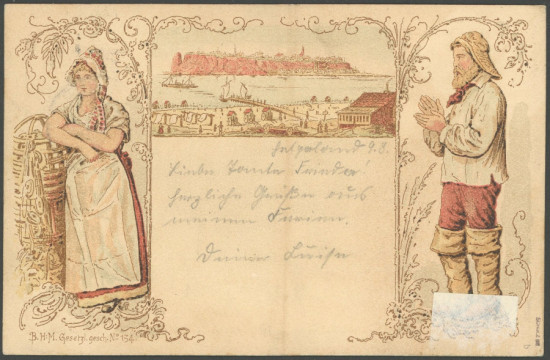 Helgoland 9.8.
Liebe Tante Frieda!
herzliche Grüße aus
meinen Ferien.
Deine Luise
B.H.M. Gesetzl. gesch. No 154.